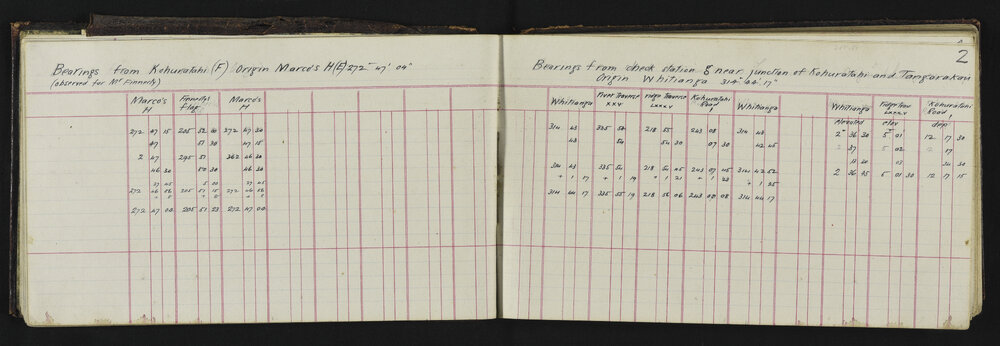 2
Bearings from Kohuratahi (F) Origin Marco's H(E) 272° 47' 04"
(observed for Mr Finnerty)
Marco's H Finnerty's flag Marco's H
272 47 15 205 52 00 272 47 30
47 51 30 47 15
2 47 295 51 262 46 30
46 30 50 30 46 30
27 45 5 00 27 45
272 46 56 205 51 15 272 46 56
272 47 04 205 51 23 272 47 04
Bearings from check station 8 near junction of Kohuratahi and Tangarakau
Origin Whitianga 314° 44' 17"
Whitianga River Traverse XXV ridge Traverse LXXXV Kohuratahi Road 1 Whitianga Whitianga Ridge Trav LXXXV Kohuratahi Road 1
elevated elev dep
314 43 335 54 218 55 243 08 314 43 2° 36 30 5° 01' 12 17 30
43 54 54 30 07 30 42 45 2 37 5 02 12 17
03 30
314 43 335 54 218 54 45 243 07 45 314 42 52 2 36 45 5 01 30 12 17 15
+ 1 17 + 1 19 + 1 21 + 1 23 + 1 25
314 44 17 335 55 19 218 56 06 243 09 08 314 44 17